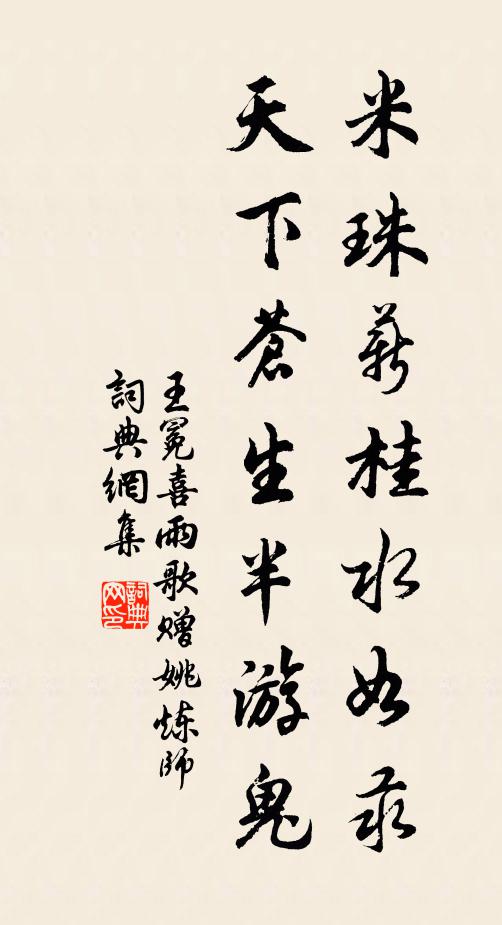 米珠薪桂水如汞
天下蒼生半游鬼
王冕喜雨歌贈姚炼師
詞典網集
詞典网印